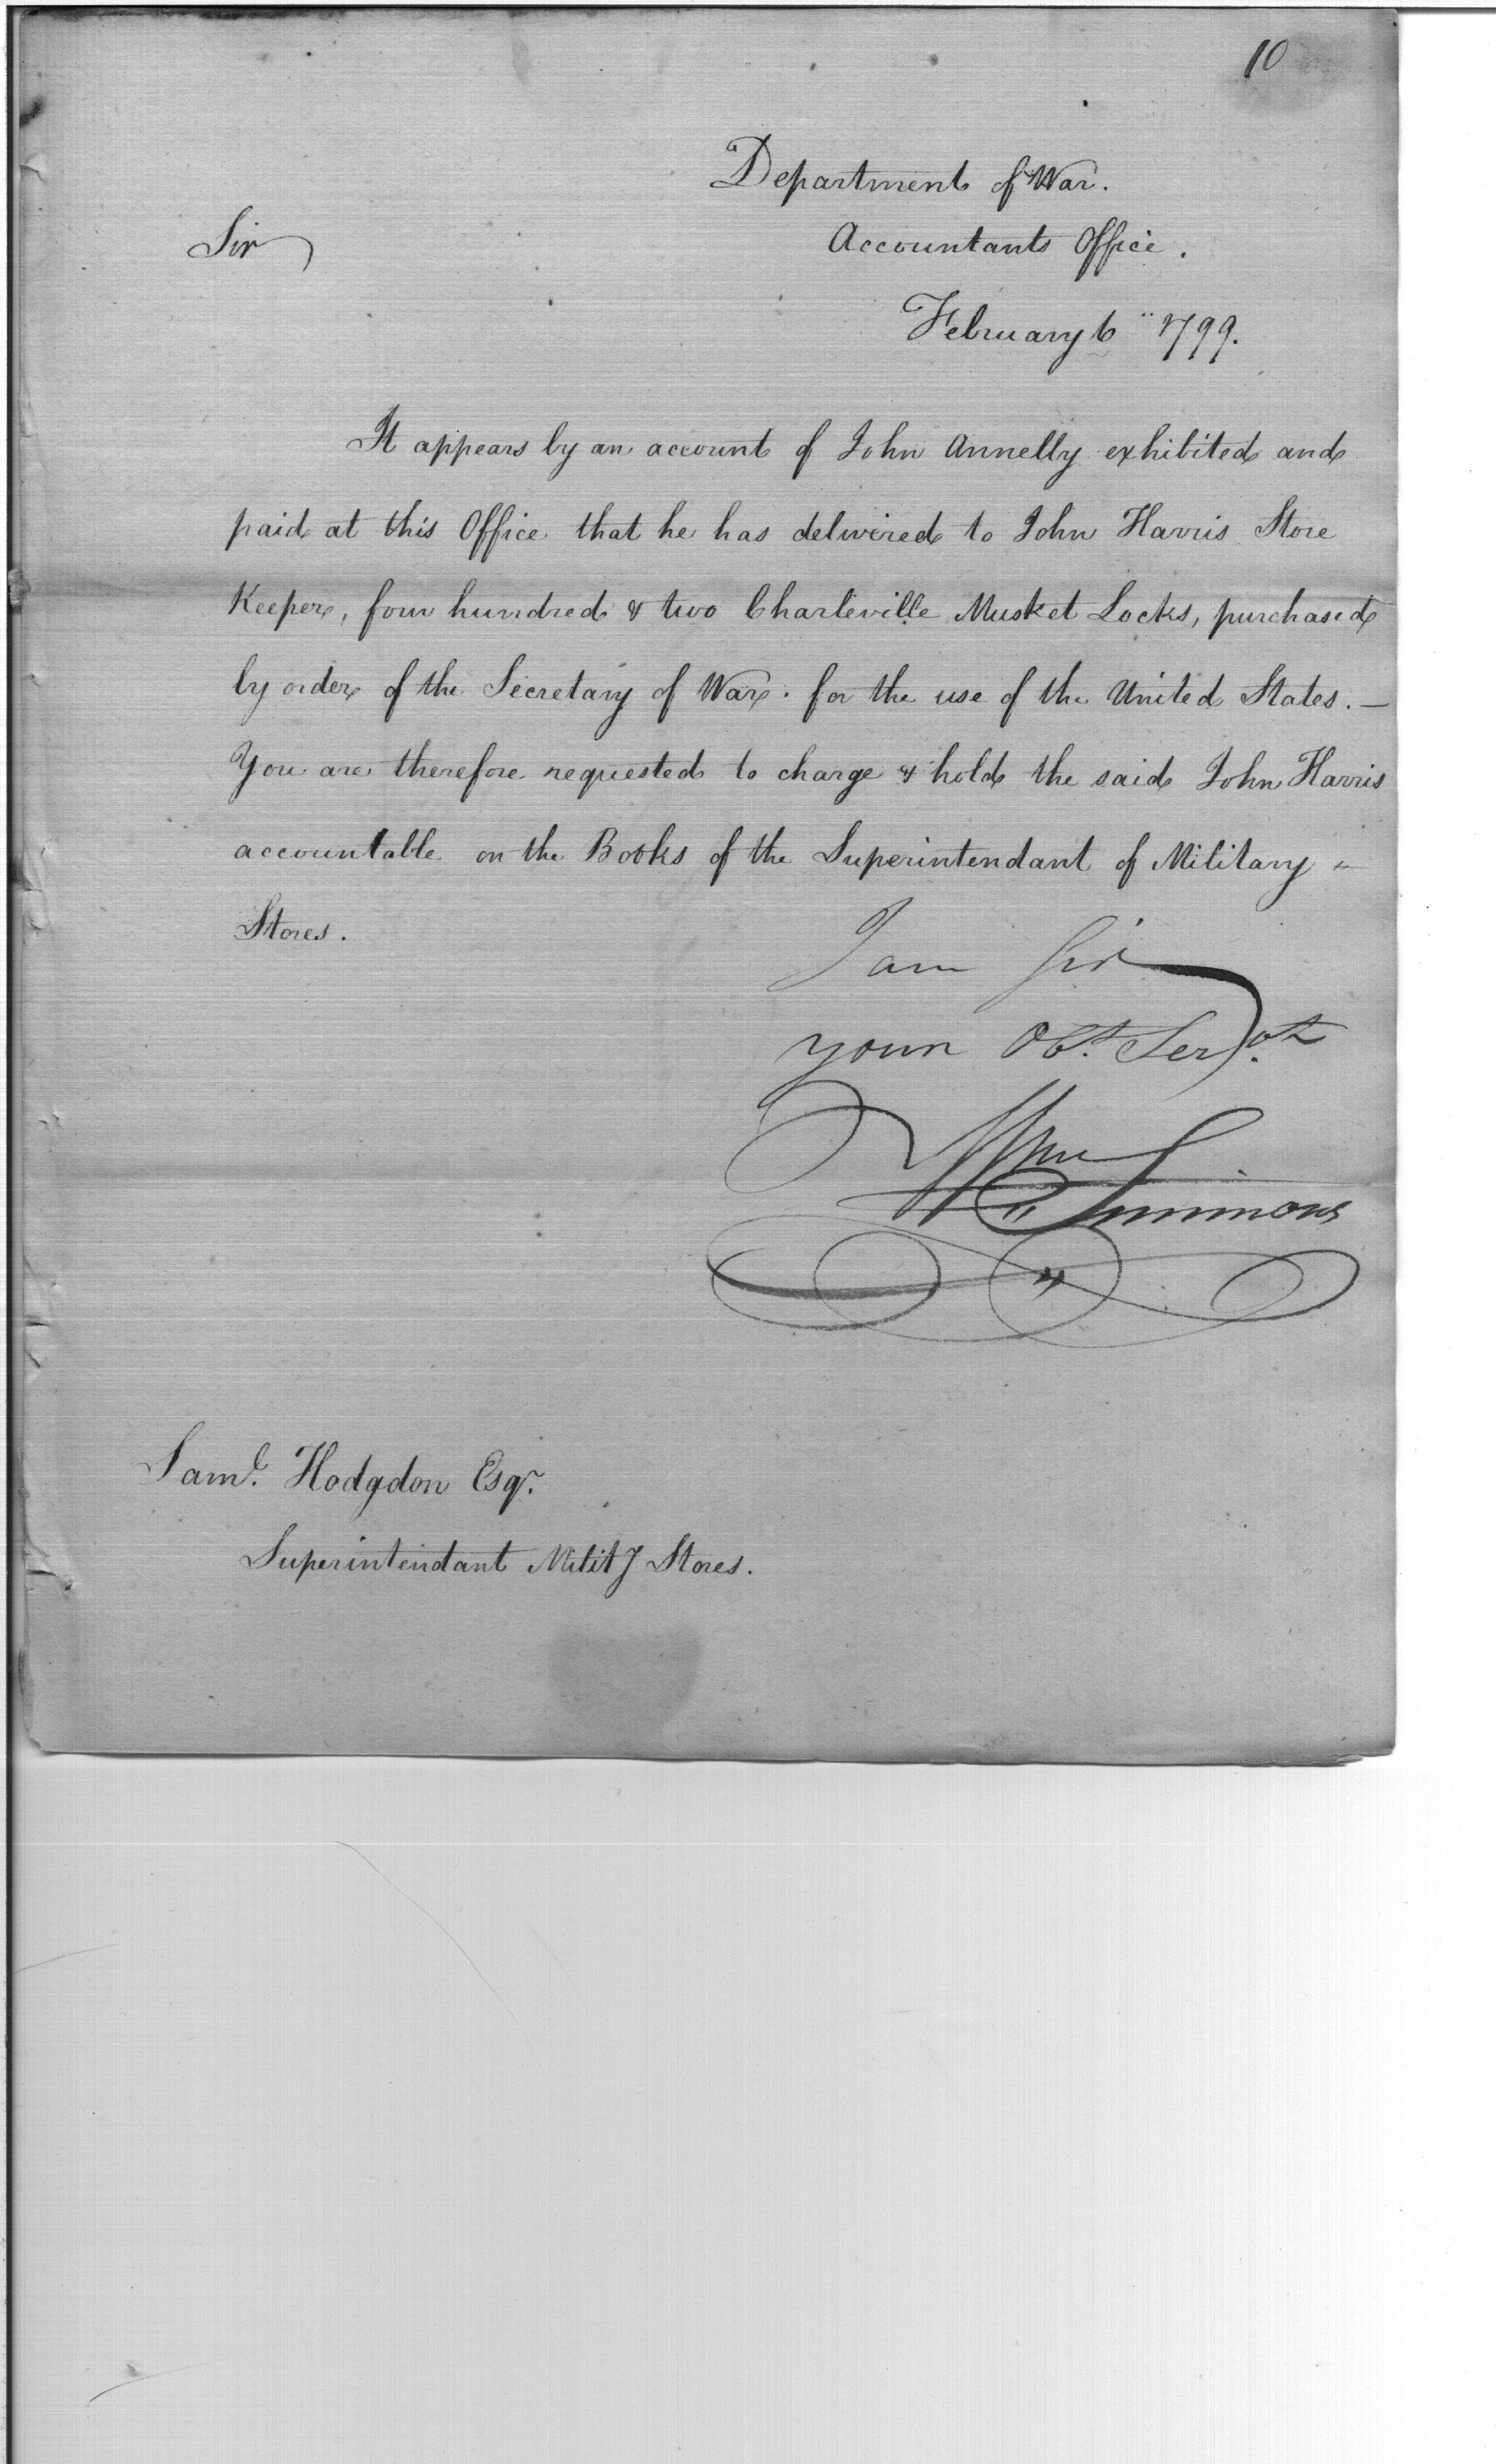 10
Department of War.
Sir
Accountants Office.
February 6" 1799.
It appears by an account of John Annelly exhibited and
paid at this Office that he has delivered to John Harris Store
Keeper, four hundred & two Charleville Musket Locks, purchased
by order of the Secretary of War. for the use of the United States. —
You are therefore requested to charge & hold the said John Harris
accountable on the Books of the Superintendant of Military
Stores.
I am Sir
your Obt. Servt.
Wm Simmons
Saml. Hodgdon Esqr.
Superintendant Mility Stores.